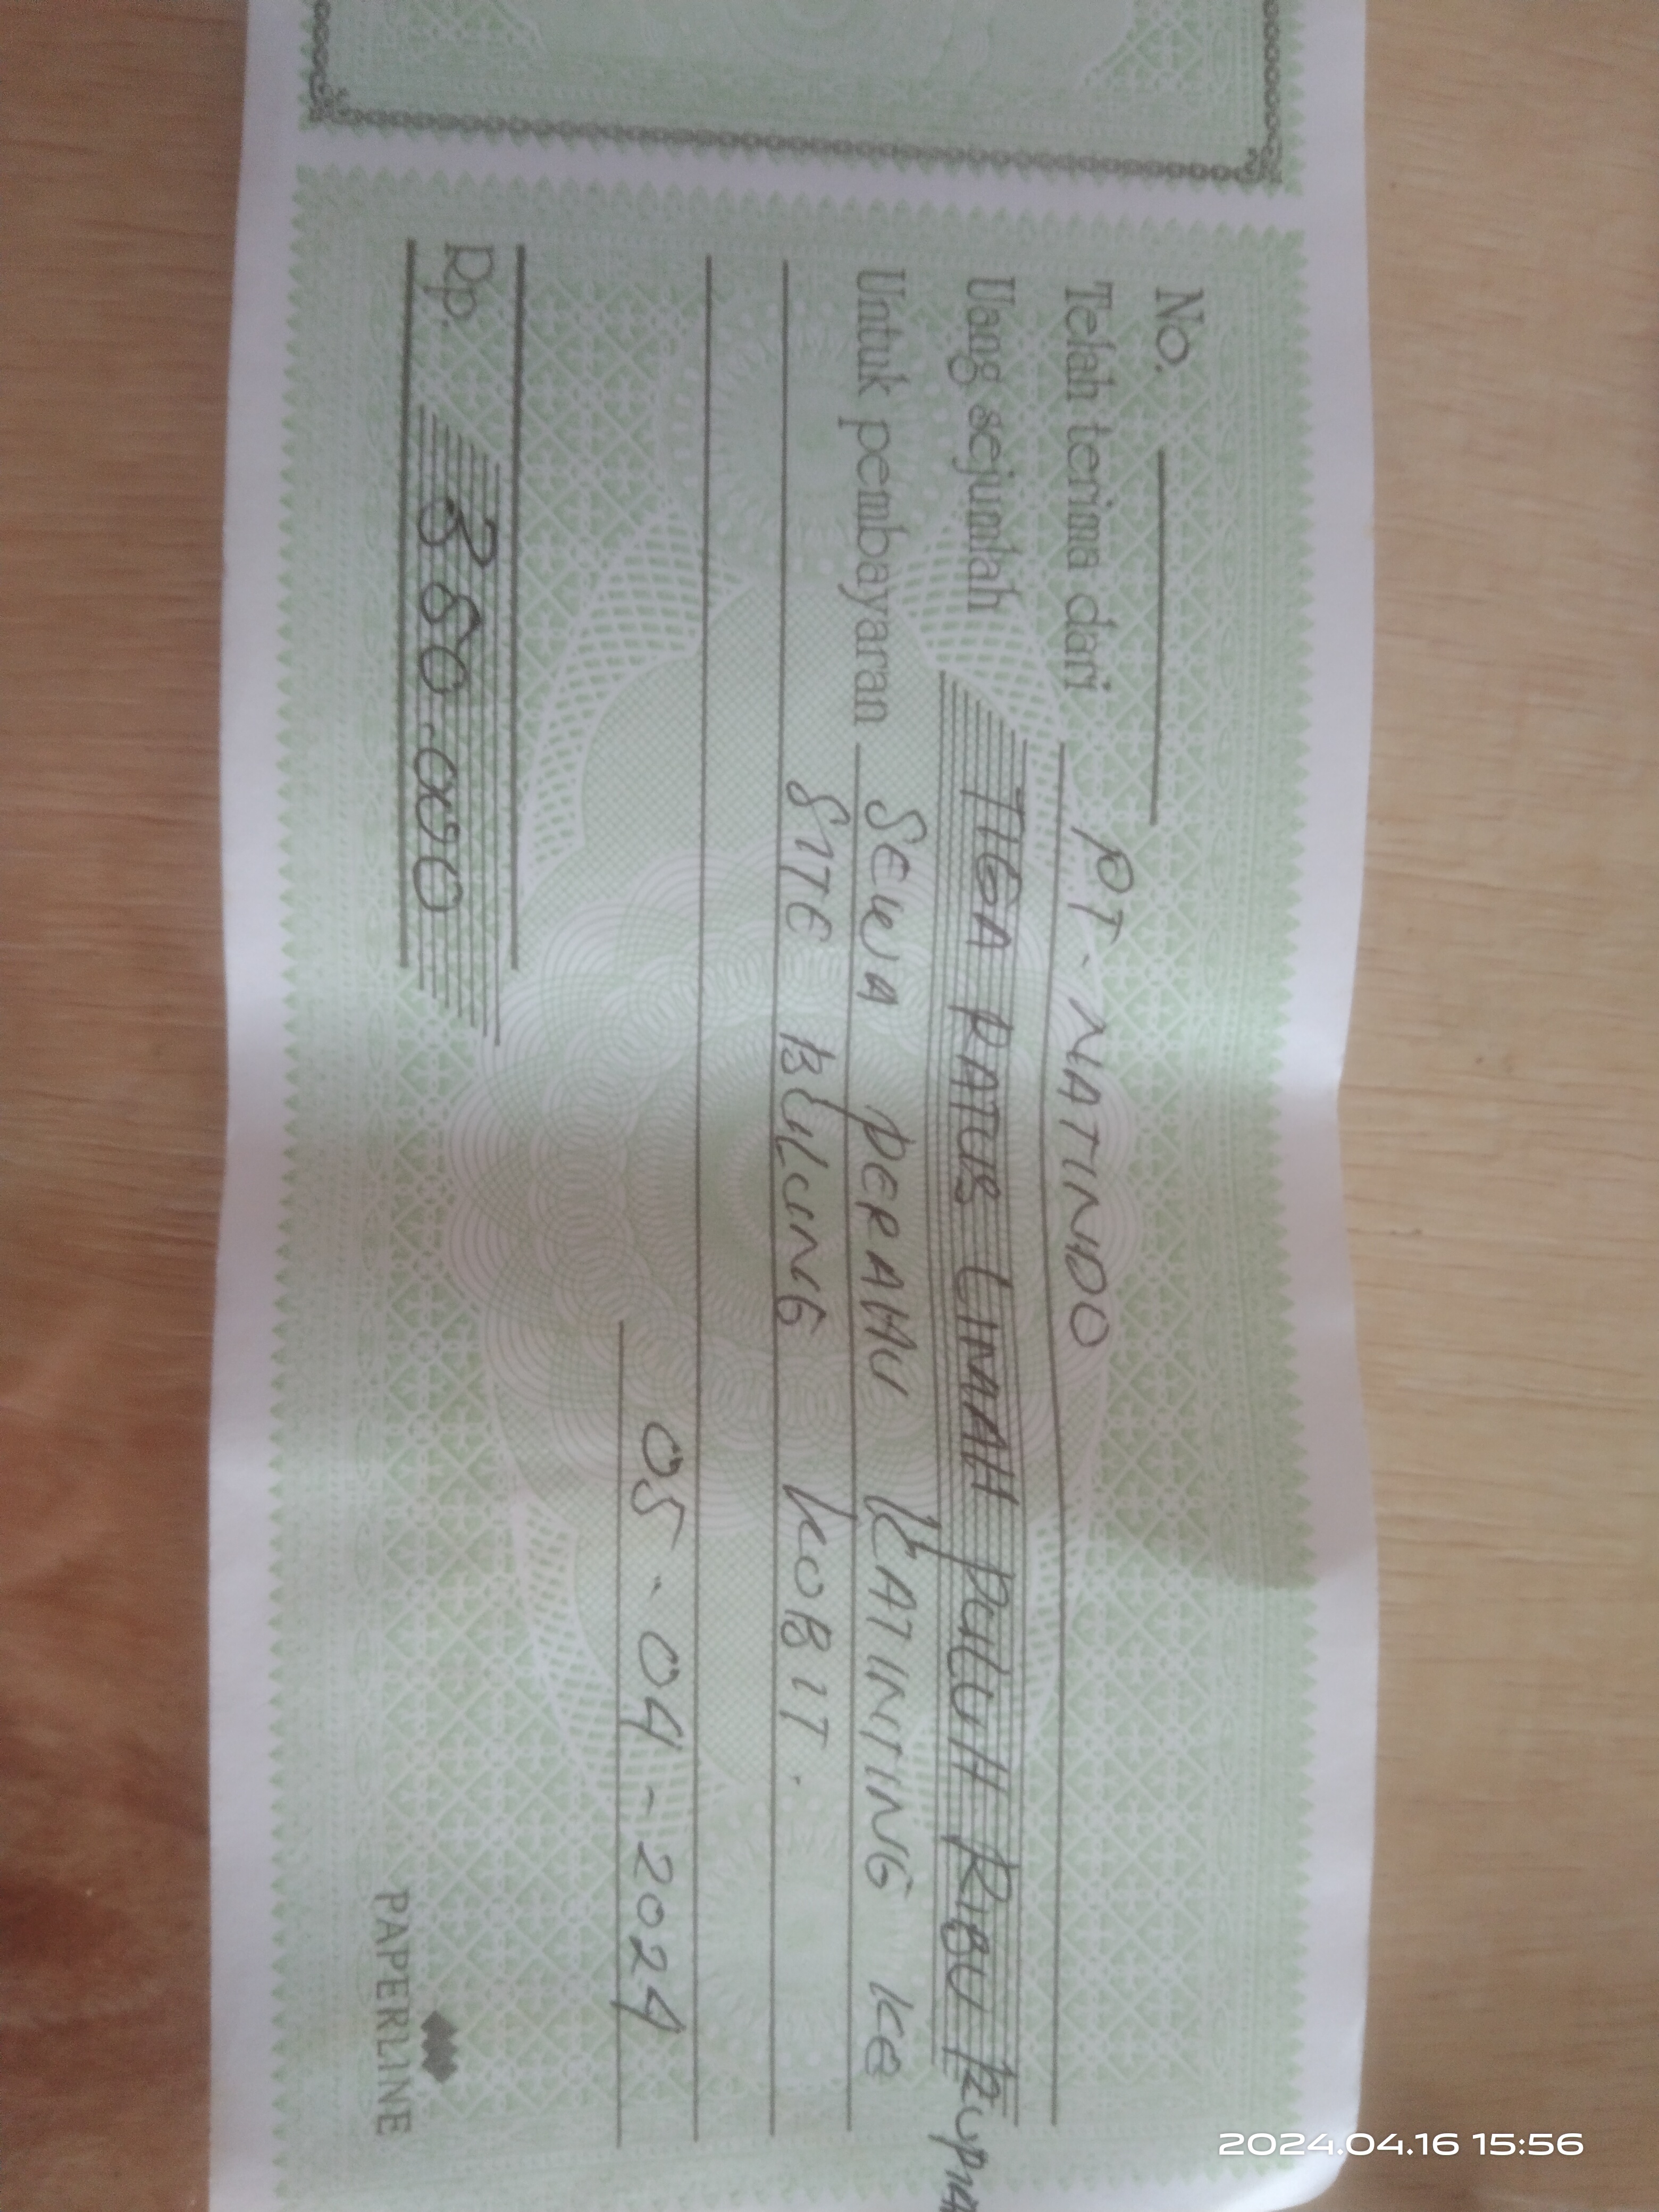 No.
Telah terima dari PT. NATINDO
Uang sejumlah TIGA RATUS LIMAH PULUH RIBU RUPIAH
Untuk pembayaran SEWA PERAHU KATINTING KE
SITE BULUNG KOBIT.
05-04-2024
Rp. 350.000
PAPERLINE
2024.04.16 15:56